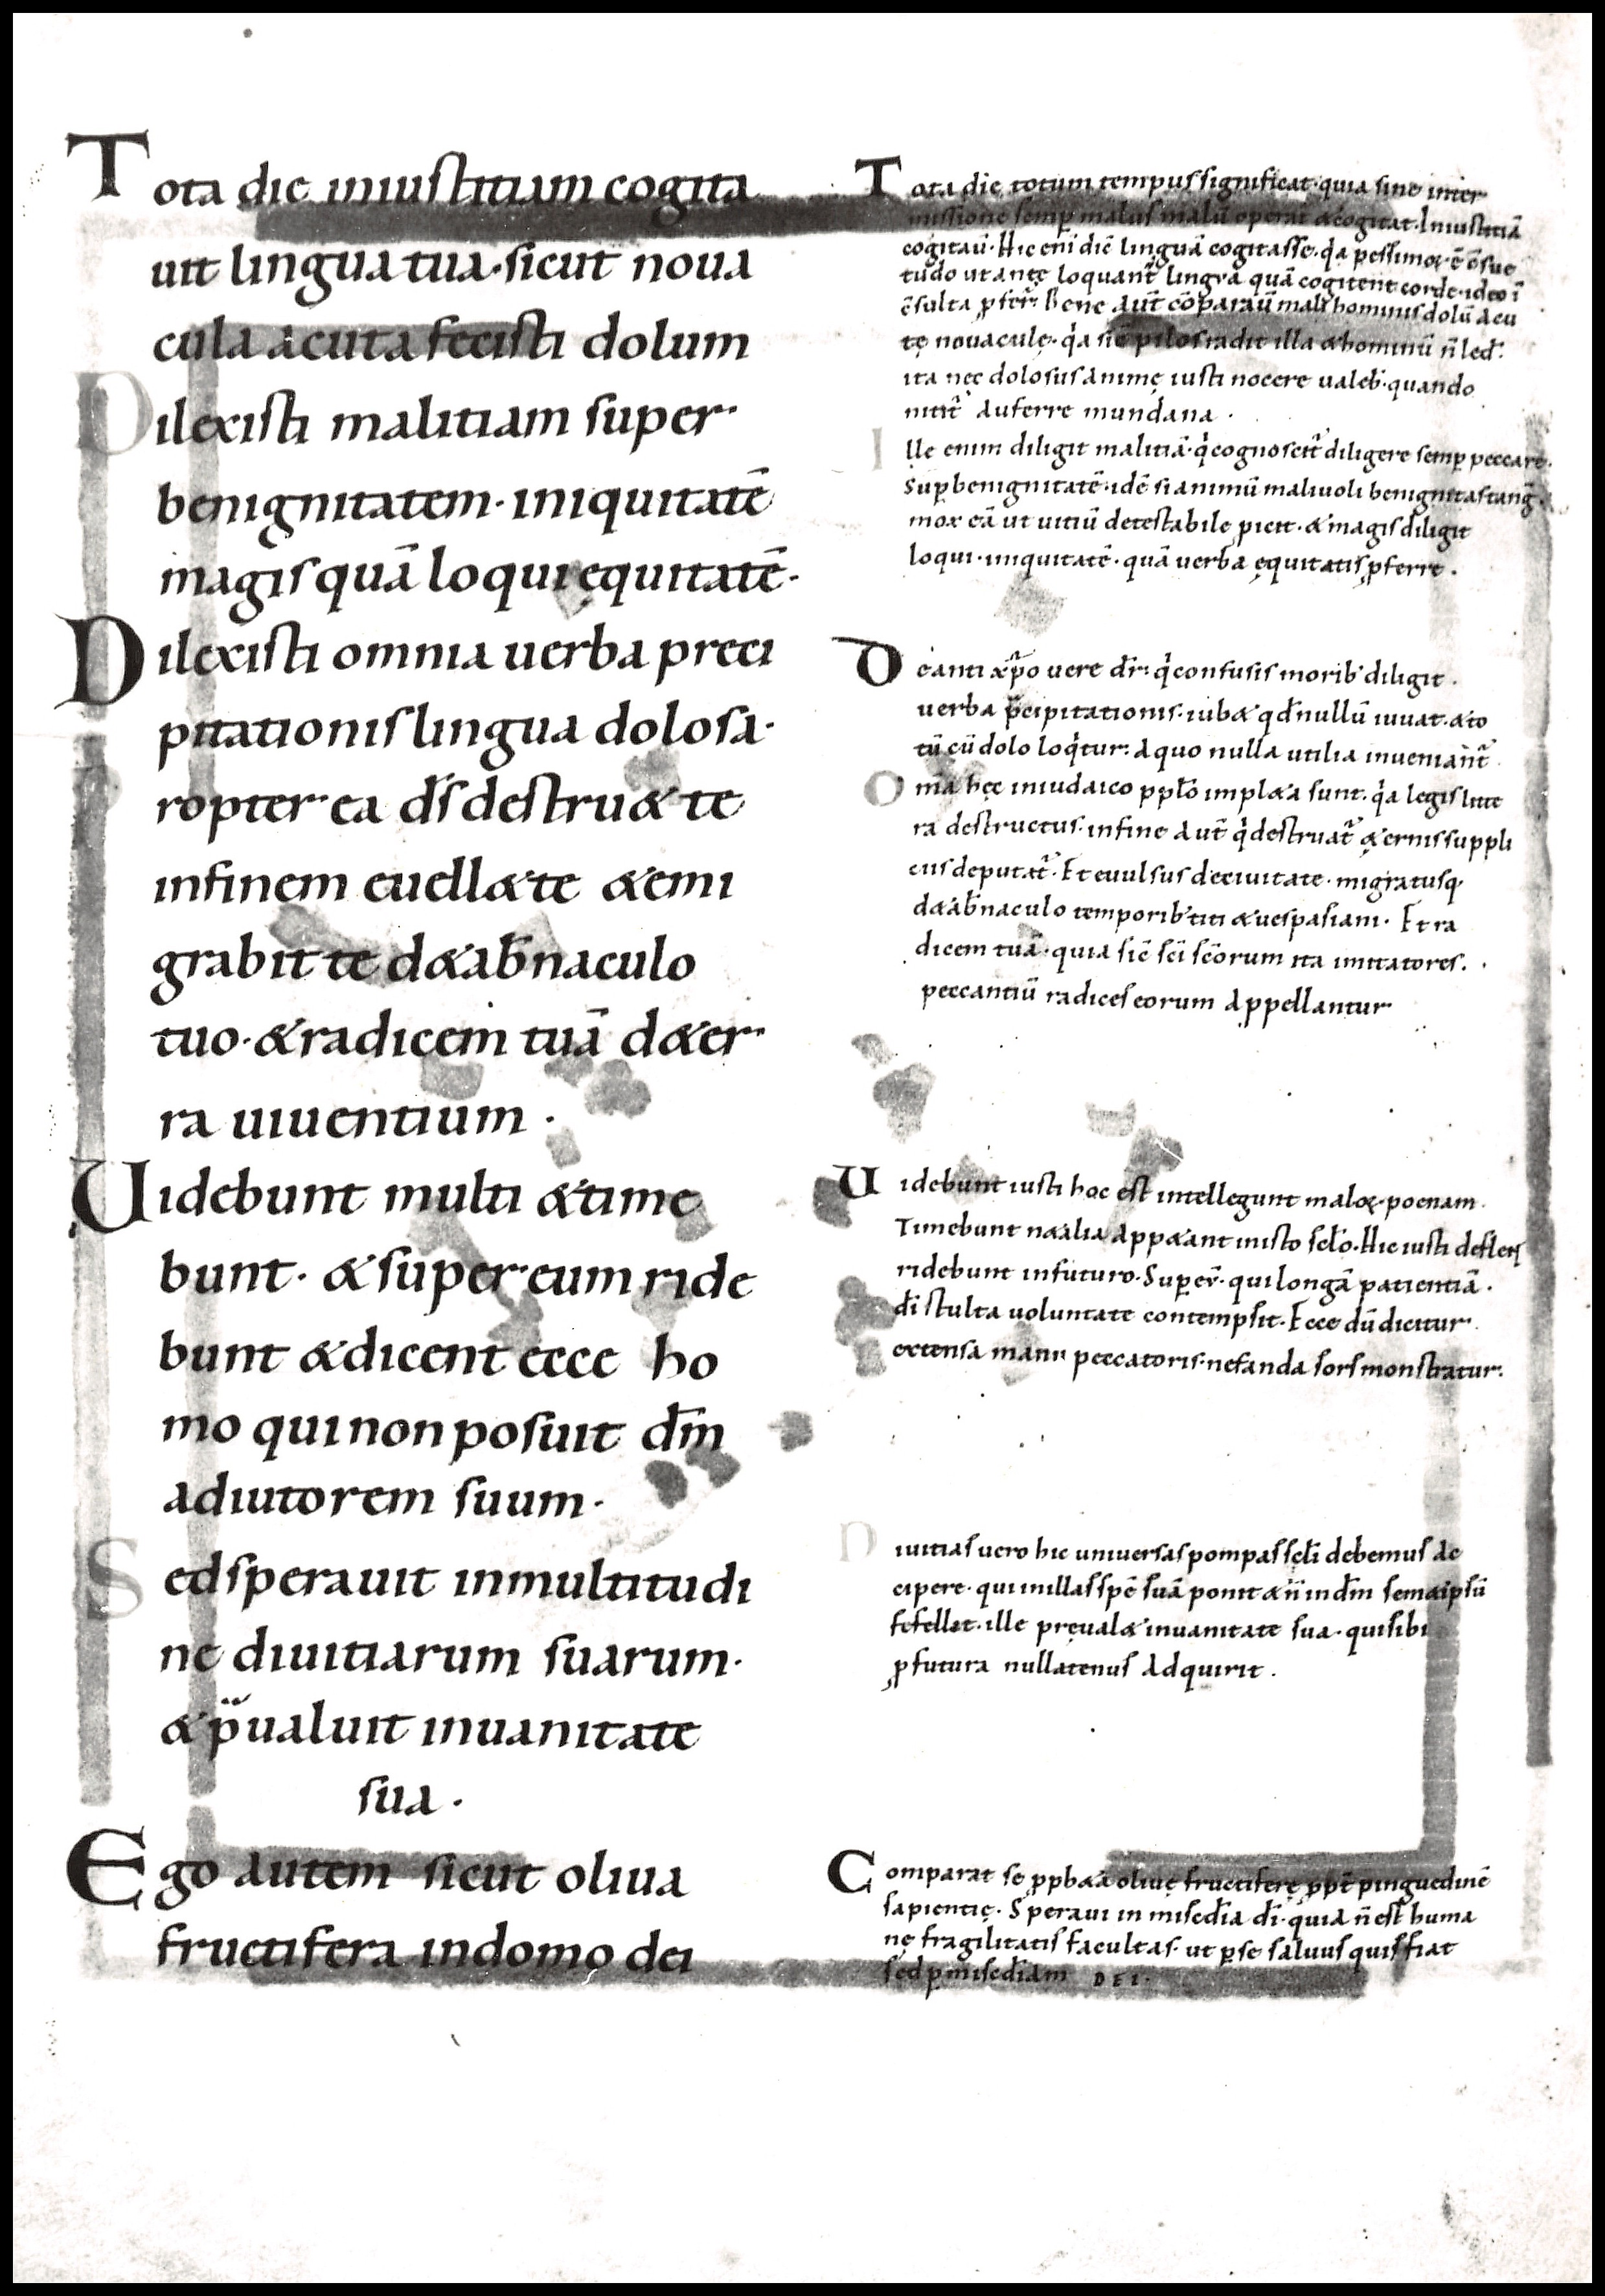 Tota die iniustitiam cogita
uit lingua tua· sicut noua
cula acuta fecisti dolum
Dilexisti malitiam super
benignitatem· iniquitatē
magis quā loqui ęquitatē·
Dilexisti omnia uerba preci
pitationis lingua dolosa·
Propter ea d̄s destru& te
infinem euell& te &emi
grabit te d& ab̄naculo
tuo· & radicem tuā d& er
ra uiuentium ·
Uidebunt multi &time
bunt· & super eum ride
bunt &dicent ecce ho
mo qui non posuit dm̄
adiutorem suum·
Sed sperauit in multitudi
ne diuitiarum suarum·
& p̄ualuit inuanitate
sua ·
Ego autem sicut oliua
fructifera indomo dei
Tota die totum tempus significat· quia sine inter
missione semp malus malū operat &cogitat· Iniustitiā
cogitau̅· Hic eni̅ diē linguā cogitasse· q̇a pessimoꝝ ē c̄sue
tudo ut antę loquant̄ lingua quā cogitent corde· ideo i̅
c̄sulta ꝓfer̄· Bene aut̄ cōparau̅ mali hominis dolū acu
tę nouaculę· q̇a sic̄ pilos radit illa &hominū n̄ led̄·
ita nec dolosus animę iusti nocere ualeb̄· quando
nitit̄ auferre mundana ·
Ille enim diligit malitiā· q̇ cognoscit̄ diligere semp peccare·
Sup benignitatē· idē si animū maliuoli benignitas tanḡ·
mox eā ut uitiū detestabile picit· & magis diligit
loqui· iniquitatē· quā uerba ęquitatis ꝓferre ·
De anti xp̄o uere dr̄· q̇ confusis morib' diligit ·
uerba p̄cipitationis· iub& qd̄ nullū iuuat· & to
tū cū dolo loq̇tur: a quo nulla utilia inueniant̄
Om̄a hęc in iudaico pplo̅ impl&a sunt· q̇a legis litte
ra destructus· infine aut̄ q̇ destruat̄ &ernis suppli
ciis deputat̄· Et euulsus de ciuitate· migratusq·
d& ab̄naculo temporib' titi & uespasiani· Et ra
dicem tuā· quia sic̄ sc̄i sc̄orum ita imitatores·
peccantiū radices eorum appellantur
Uidebunt iusti hoc est intellegunt maloꝝ· poenam
Timebunt n& alia app&ant inisto scl̄o· Hic iusti deflent
ridebunt infuturo· Super ē̅· qui longā patientiā ·
dī stulta uoluntate contempsit· Ecce dū dicitur
extensa manu peccatoris· nefanda sors monstratur·
Diuitias uero hic uniuersas pompas scl̄i debemus ac
cipere· qui inillas spē suā ponit & n̄ in dm̄ sem&ipsū
fefellit· ille pręual& inuanitate sua· qui sibi
ꝓfutura nullatenus adquirit ·
Comparat se ꝓph&a oliuę fructiferę ꝓpt̄ pinguedinē
sapientię· Speraui in misedīa dī· quia n̄ est huma
nę fragilitatis facultas· ut p se saluus quis fiat
sed p misedīam DEI·